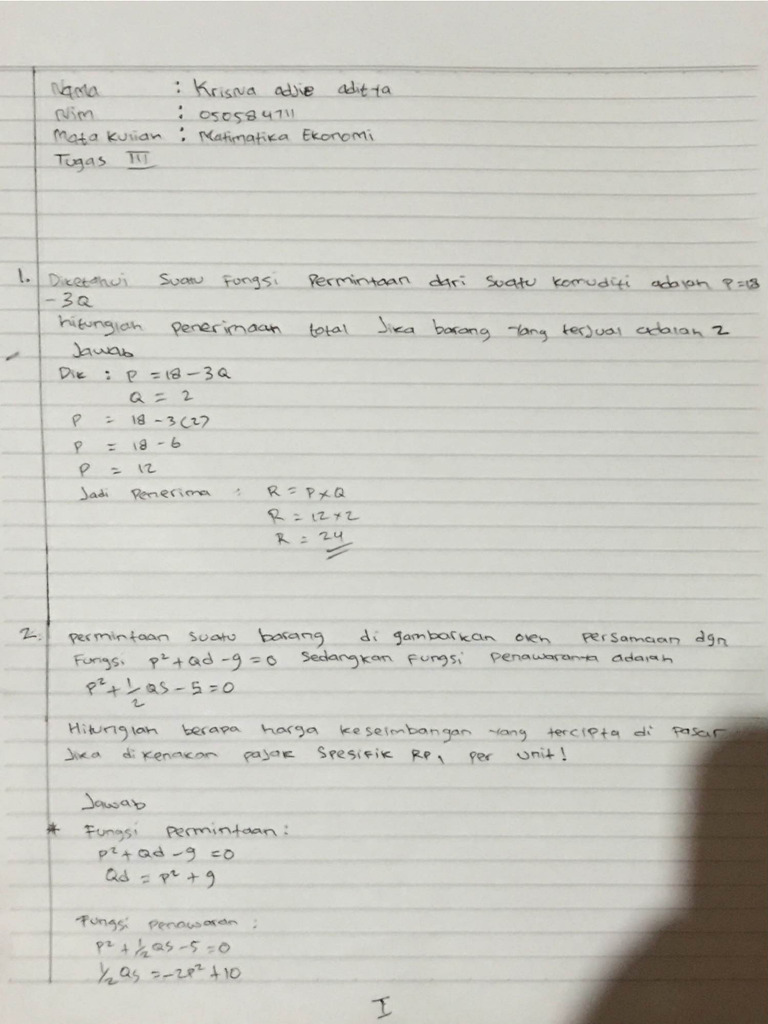 Nama : Krisna adjie aditya
Nim : 050584711
Mata kuliah : Matimatika Ekonomi
Tugas III
1. Diketahui Suatu Fungsi Permintaan dari Suatu komuditi adalah P=18
-3Q
hitunglah penerimaan total Jika barang yang terjual adalah 2
Jawab
Dik : P = 18 - 3Q
Q = 2
P = 18 - 3(2)
P = 18 - 6
P = 12
Jadi Penerima : R = P x Q
R = 12 x 2
R = 24
2. permintaan suatu barang di gambarkan oleh persamaan dgn
Fungsi P² + Qd - 9 = 0 Sedangkan Fungsi penawaranta adalah
P² + 1/2 QS - 5 = 0
Hitunglah berapa harga keseimbangan yang tercipta di pasar
Jika di kenakan pajak Spesifik RP1 per unit!
Jawab
* Fungsi permintaan :
P² + Qd - 9 = 0
Qd = P² + 9
Fungsi penawaran :
P² + 1/2 QS - 5 = 0
1/2 QS = -2P² + 10
I